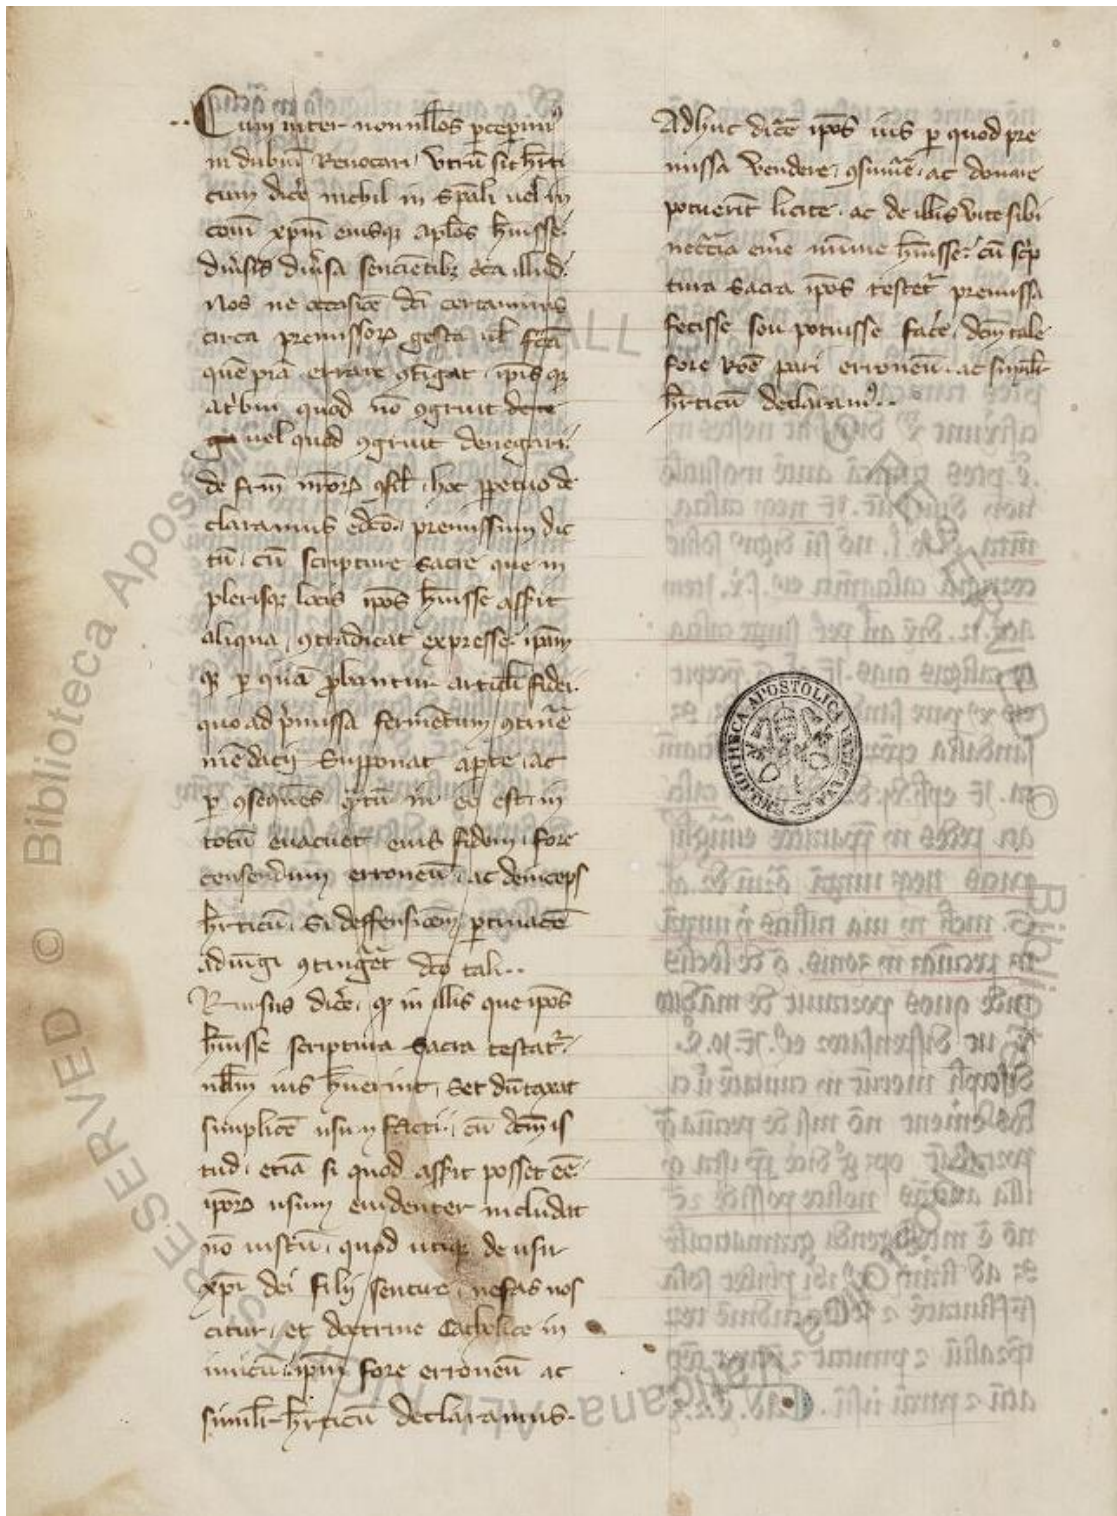 Cum inter nonnłłos ꝑcepimꝰ
in dubiū Reuocari / vtrū sit hˉrti
cum dicˉe nichil in spāli uel in
comī xp̄m eiusqꝫ apl̄os hˉuisse /
diu̓sis diu̓sa sencientibꝫ cˉca illud /
Nos ne occasioē dc̄i certaminis
circa premissoꝝ gesta ul̄ fc̄a
quēpiā errare ꝯtīgat / ip̄isqꝫ
at̓bui quod nō ꝯgruit
uel quod ꝯgruit denegari /
de frm̄ nr̄oꝝ ꝯsil̄ / hoc ꝑpetuo de
claramus edc̄o / premissum dic
tū / cū scripture sacre que in
plerisqꝫ locis ip̄os hˉuisse assˉit
aliqua / ꝯtradicat expresse / ip̄am
qꝫ ꝑ quā ꝓbantur articl̄i fidei
quo ad p̓missa fermētum ꝯtinē
mēdacij supponat aꝑte / ac
ꝑ ꝯsequēs qˉtū in ea est in
totū euacuet eius fidem / fore
censendum erroneū / ac deinceps
hˉrticū / si deffensioēm ꝑtinacē
adiūgi ꝯtingˉet dc̄o tali ..
Rursus dicˉe / qꝫ in illis que ip̄os
hˉuisse scriptura sacra testatˀ /
nłłm ius hˉuerint / set dūtaxat
simplicē usum facti / cū dc̄m is
tud / etiā si quod assˉit posset eē
ip̄oꝝ usum euidenter includat
nō iustū / quod utiqꝫ de usu
xp̄i dei filij sentire / nefas nos
citur / et doctrine Catholice in
imicū / ip̄m fore erroneū ac
simil̄r hˉrticū declaramus .
Adhuc dicˉe ip̄os ius ꝑ quod pre
missa vendere / ꝯsumˉe / ac donare
potuerīt licite / ac de illis vite sibi
necˉcˉia emˉe minime hˉuisse / cū sc̓p
tura sacra ip̄os testetˀ premissa
fecisse seu potuisse facˉe / dc̄m tale
fore roē pari erroneū / ac simil̄r
hˉrticū declaramꝰ ..
BIBLIOTHECA APOSTOLICA VATICANA
© Biblioteca Apostolica Vaticana ALL RIGHTS RESERVED